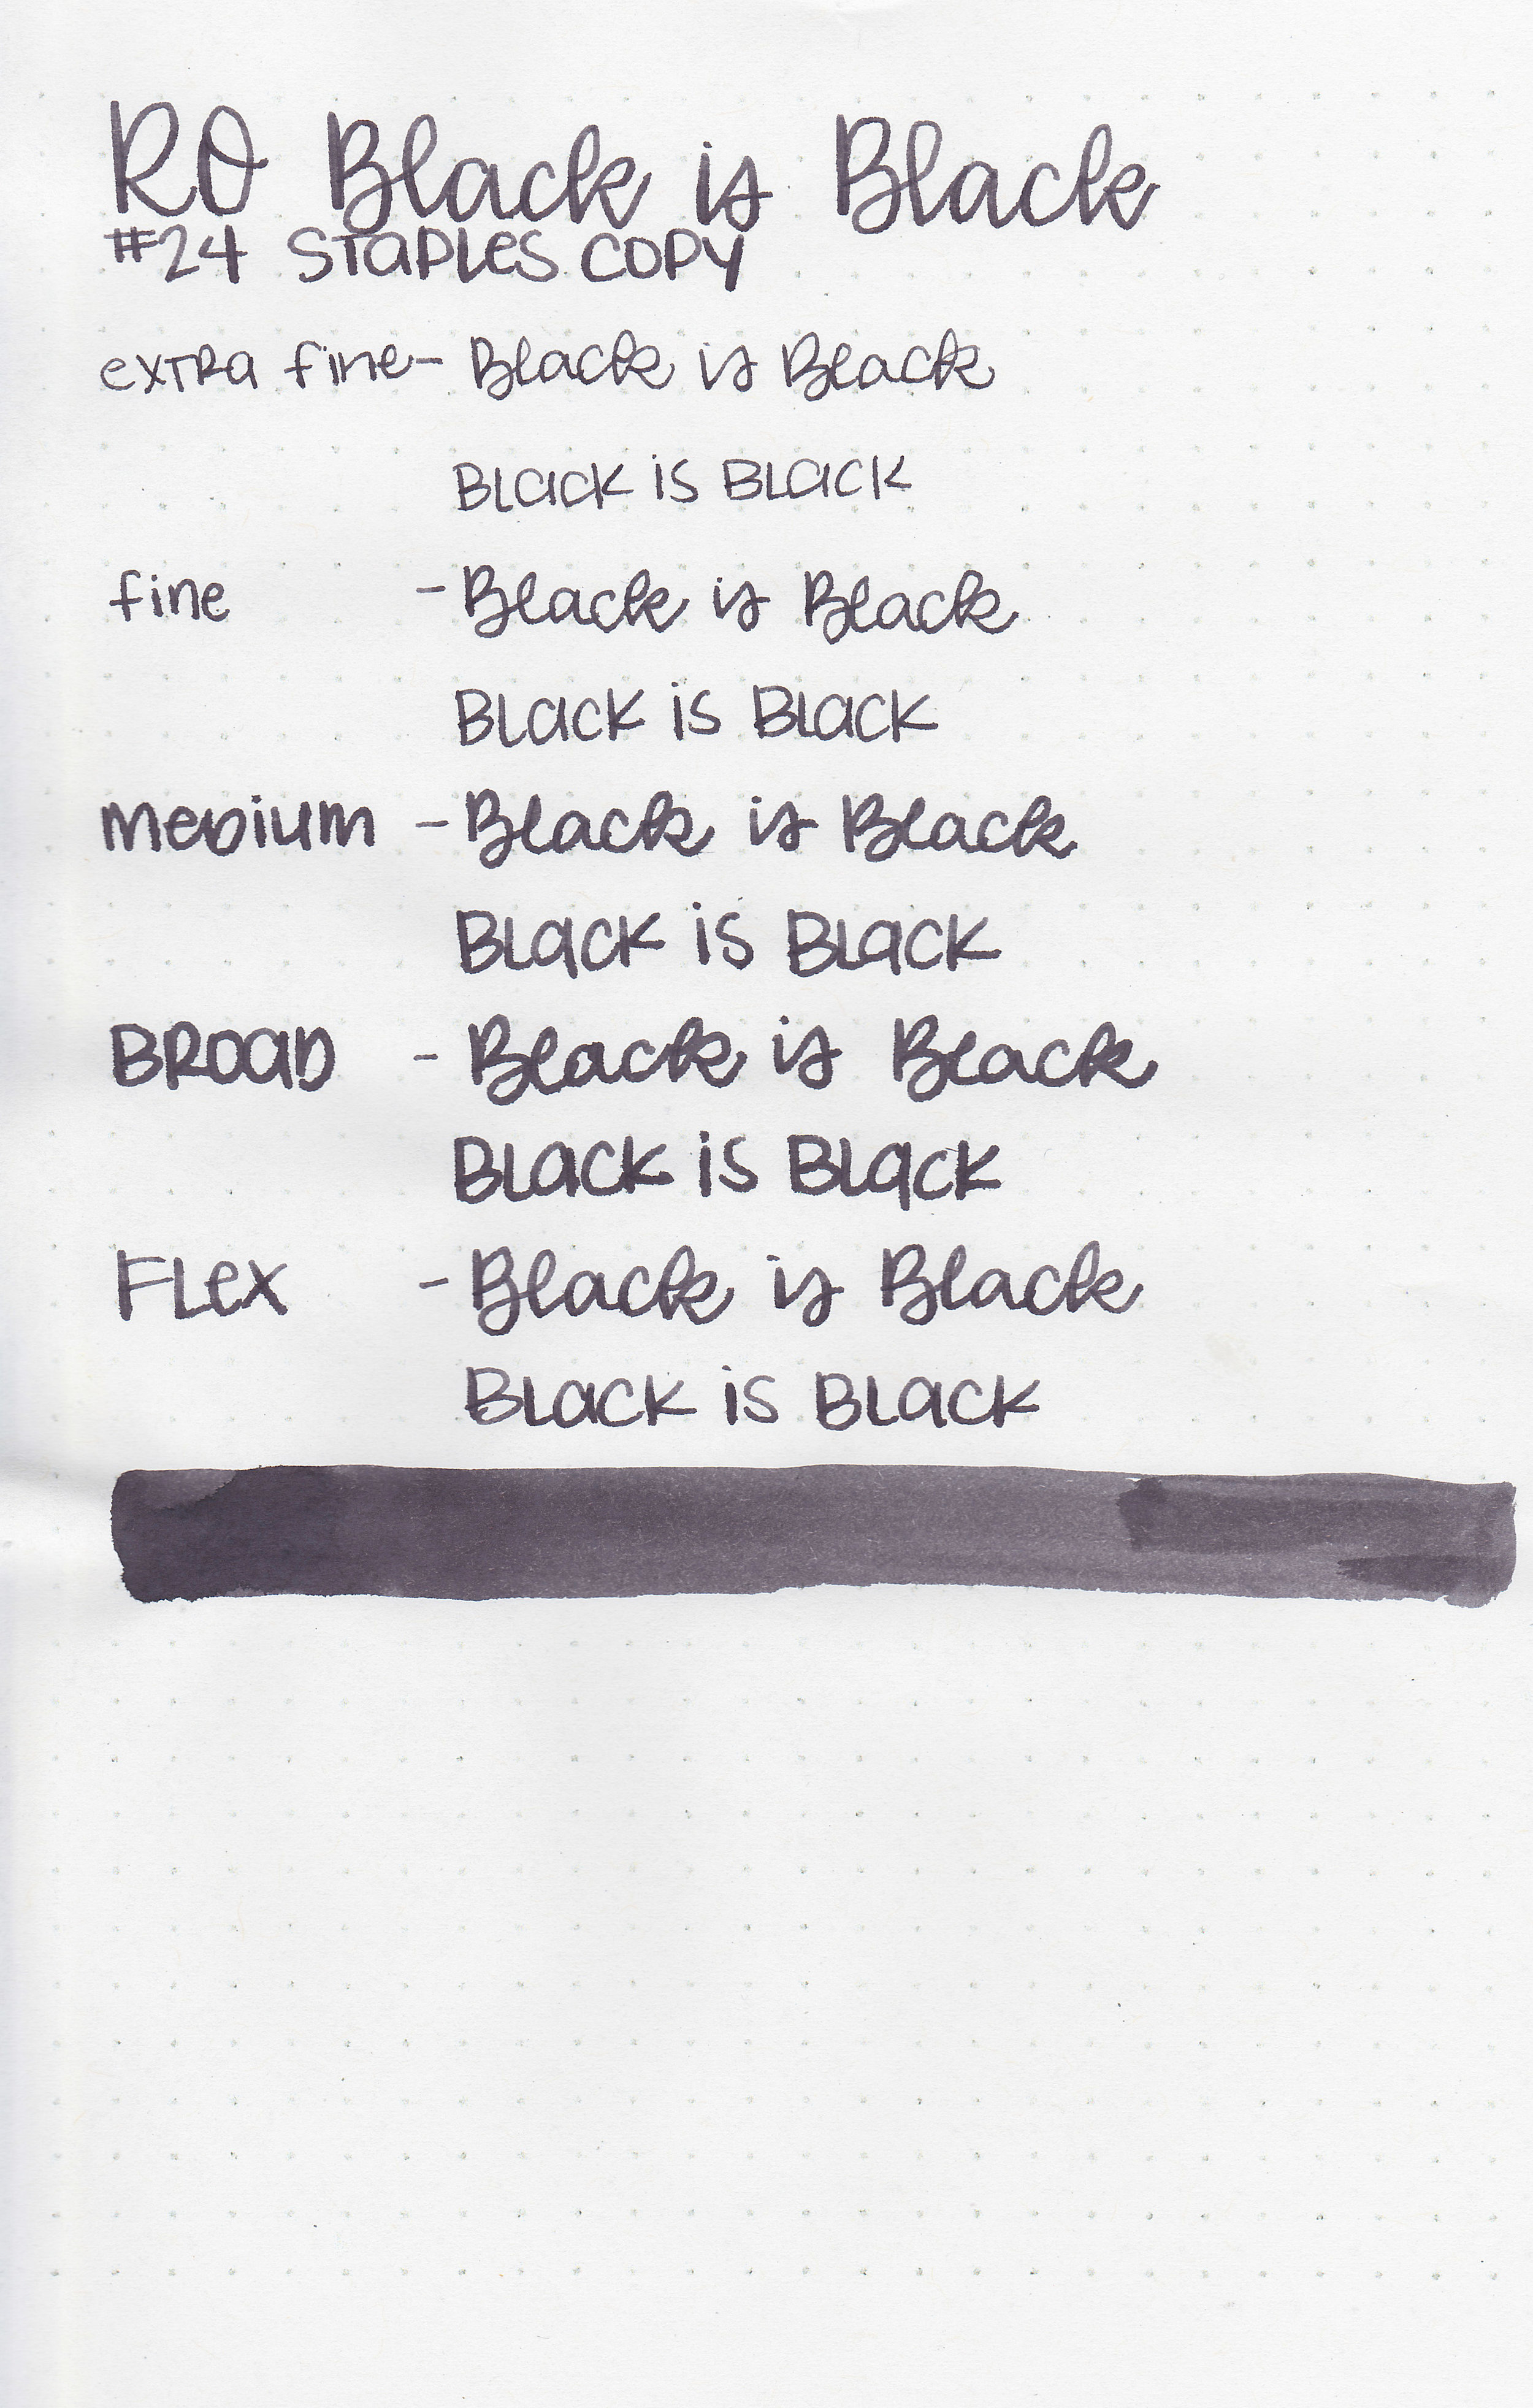 RO Black is Black
#24 Staples copy
extra fine - Black is Black
Black is Black
fine - Black is Black
Black is Black
medium - Black is Black
Black is Black
Broad - Black is Black
Black is Black
Flex - Black is Black
Black is Black